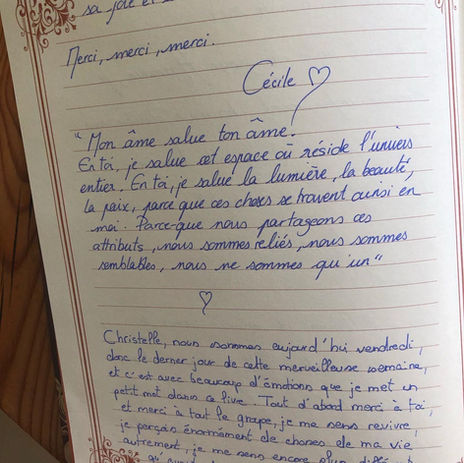 sa joie et
Merci, merci, merci.
Cécile ♡
"Mon âme salue ton âme.
En toi, je salue cet espace où réside l'univers
entier. En toi, je salue la lumière, la beauté,
la paix, parce que ces choses se trouvent aussi en
moi. Parce que nous partageons ces
attributs, nous sommes reliés, nous sommes
semblables, nous ne sommes qu'un"
♡
Christelle, nous sommes aujourd'hui vendredi,
donc le dernier jour de cette merveilleuse semaine,
et c'est avec beaucoup d'émotions que je met un
petit mot dans ce livre. Tout d'abord merci à toi,
et merci à tout le groupe, je me sens revivre,
je perçois énormément de choses de ma vie
autrement, je me sens encore plus